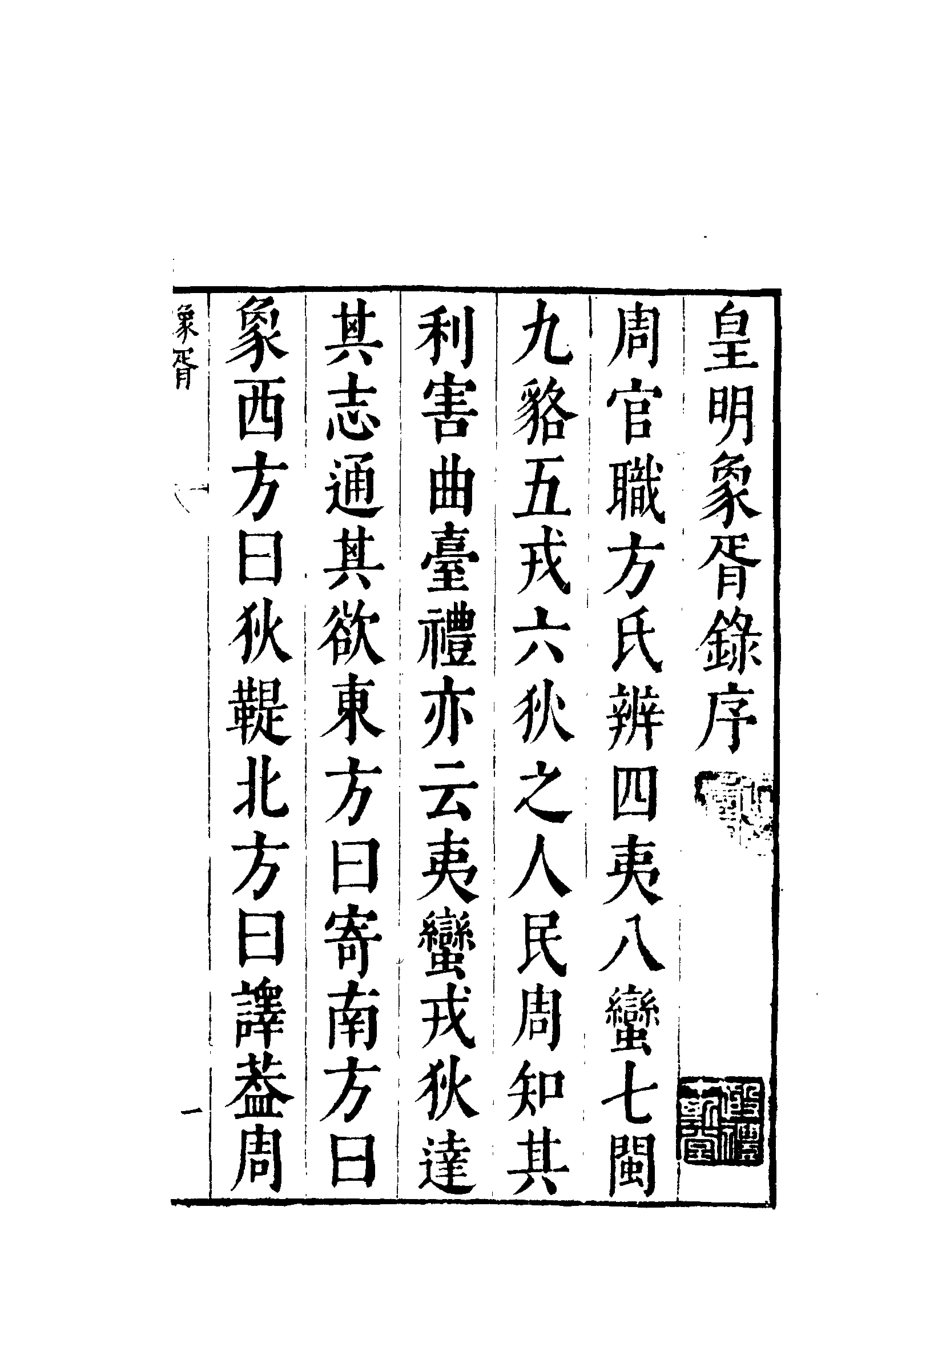 皇明象胥錄序
周官職方氏辨四夷八蠻七閩
九貉五戎六狄之人民周知其
利害曲臺禮亦云夷蠻戎狄達
其志通其欲東方曰寄南方曰
象西方曰狄鞮北方曰譯葢周
象胥
一